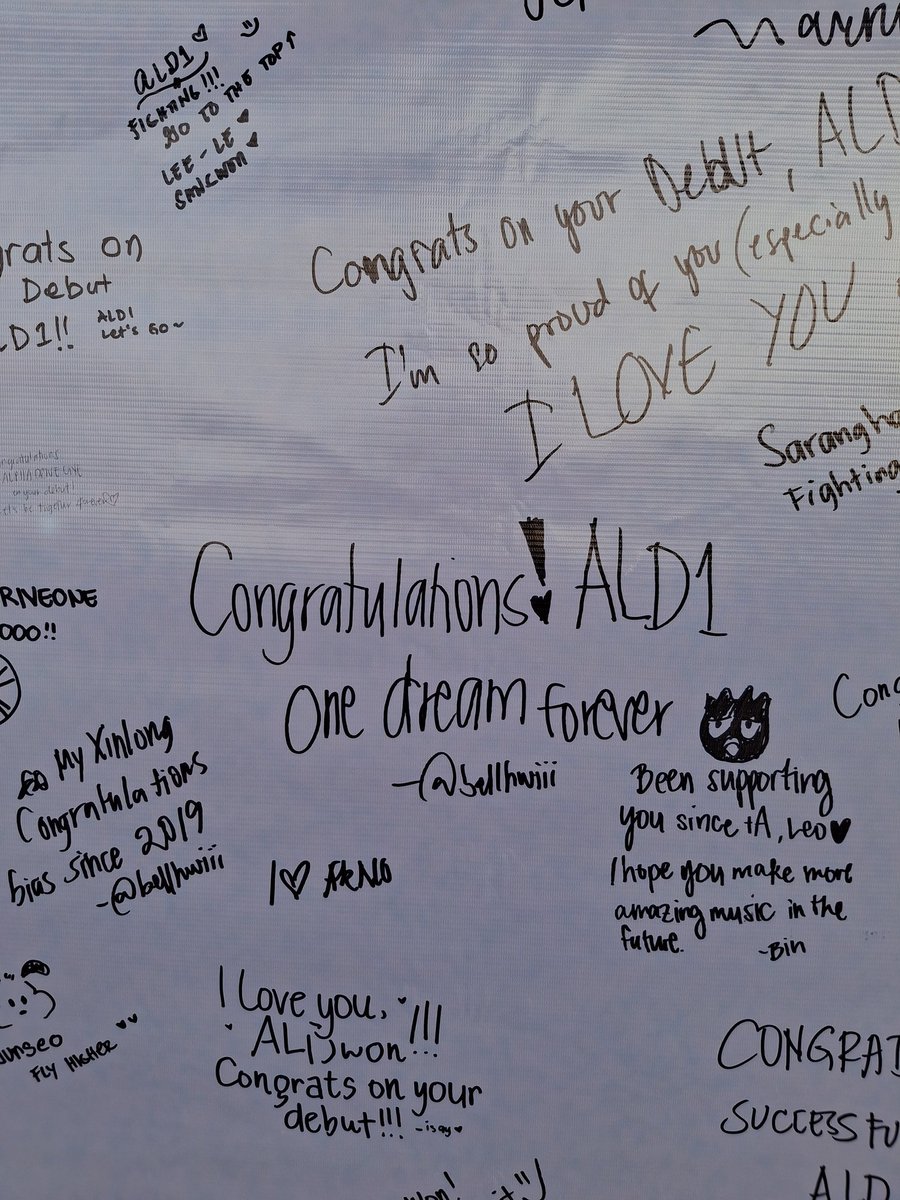 ALD1
FIGHTING!!!
GO TO THE TOP↑
LEE-LE
SANGWON
Congrats on your Debut, ALD
I'm so proud of you (especially
I LOVE YOU
grats on
Debut
LD1!!
ALD1
Let's Go~
ngratulations
ALPHA DRIVE ONE
on your debut!
let's be together forever♡
Sarangha
Fighting
Congratulations! ALD1
One dream forever
-@bellhwiii
RIVEONE
OOO!!
My Xinlong
Congratulations
bias since 2019
-@bellhwiii
I ♡ ARNO
Been supporting
you since tA, Leo♥
I hope you make more
amazing music in the
future.
-Bin
Con
unseo
FLY HIGHER
I Love you,
ALD1won!!!
Congrats on your
debut!!!
CONGRAT
SUCCESSFU
ALD